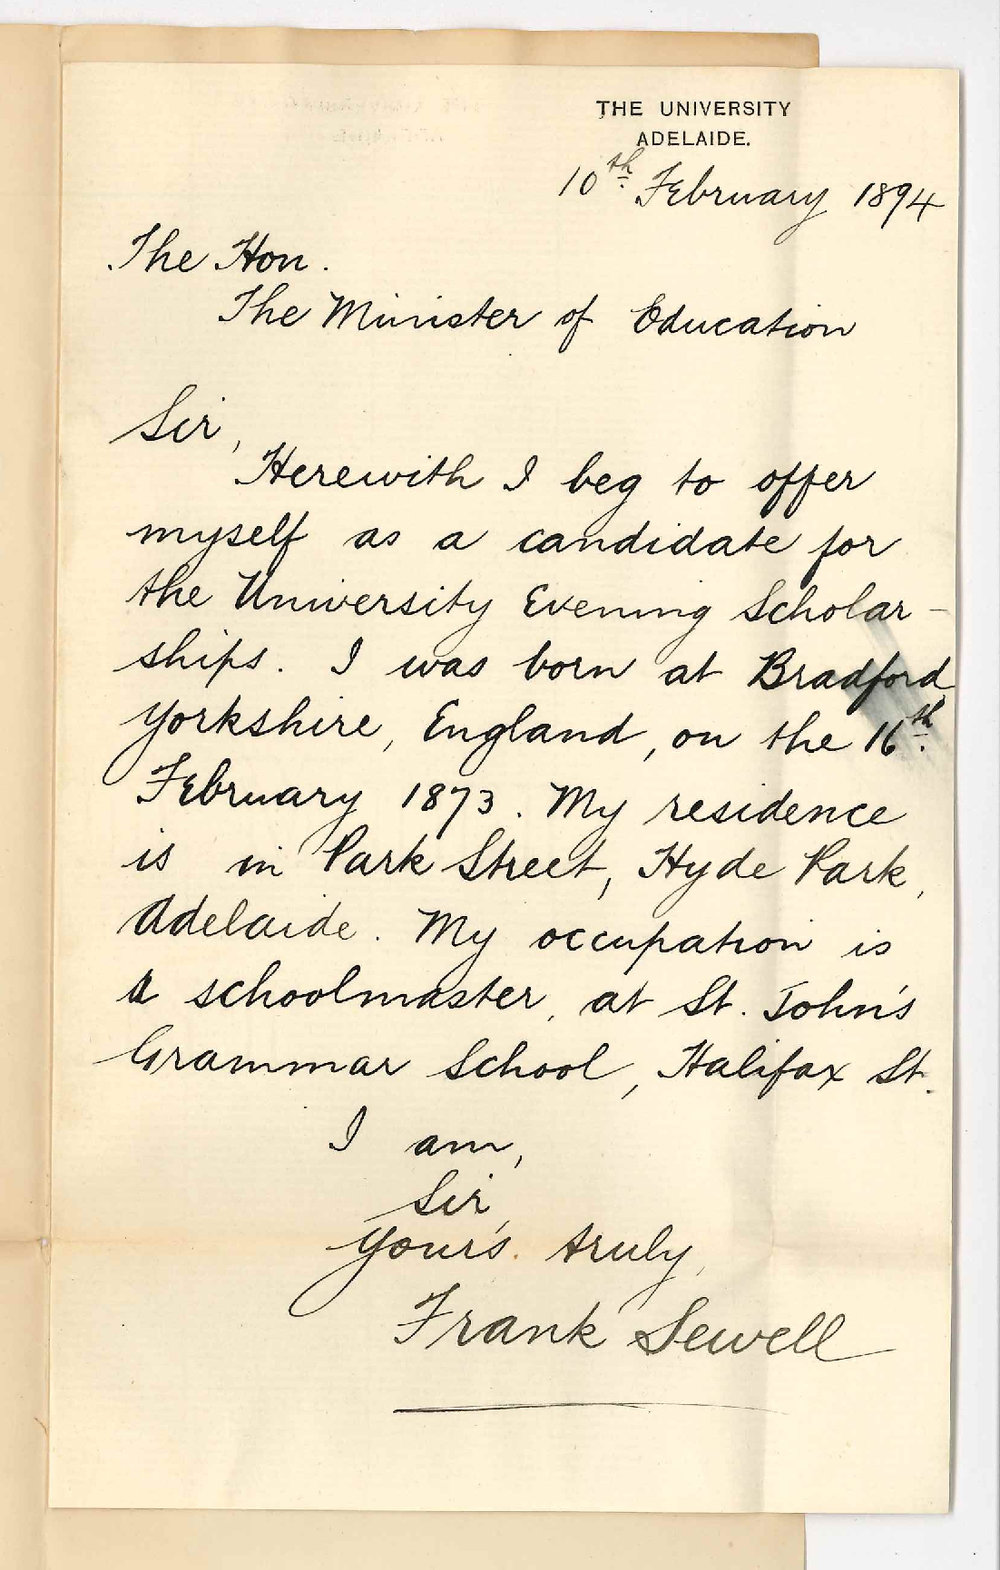 THE UNIVERSITY
ADELAIDE.
10th February 1894
The Hon.
The Minister of Education
Sir,
Herewith I beg to offer
myself as a candidate for
the University Evening Scholar-
ships. I was born at Bradford,
Yorkshire, England, on the 16th
February 1873. My residence
is in Park Street, Hyde Park,
Adelaide. My occupation is
a schoolmaster, at St. John's
Grammar School, Halifax St.
I am,
Sir,
Your's truly,
Frank Sewell